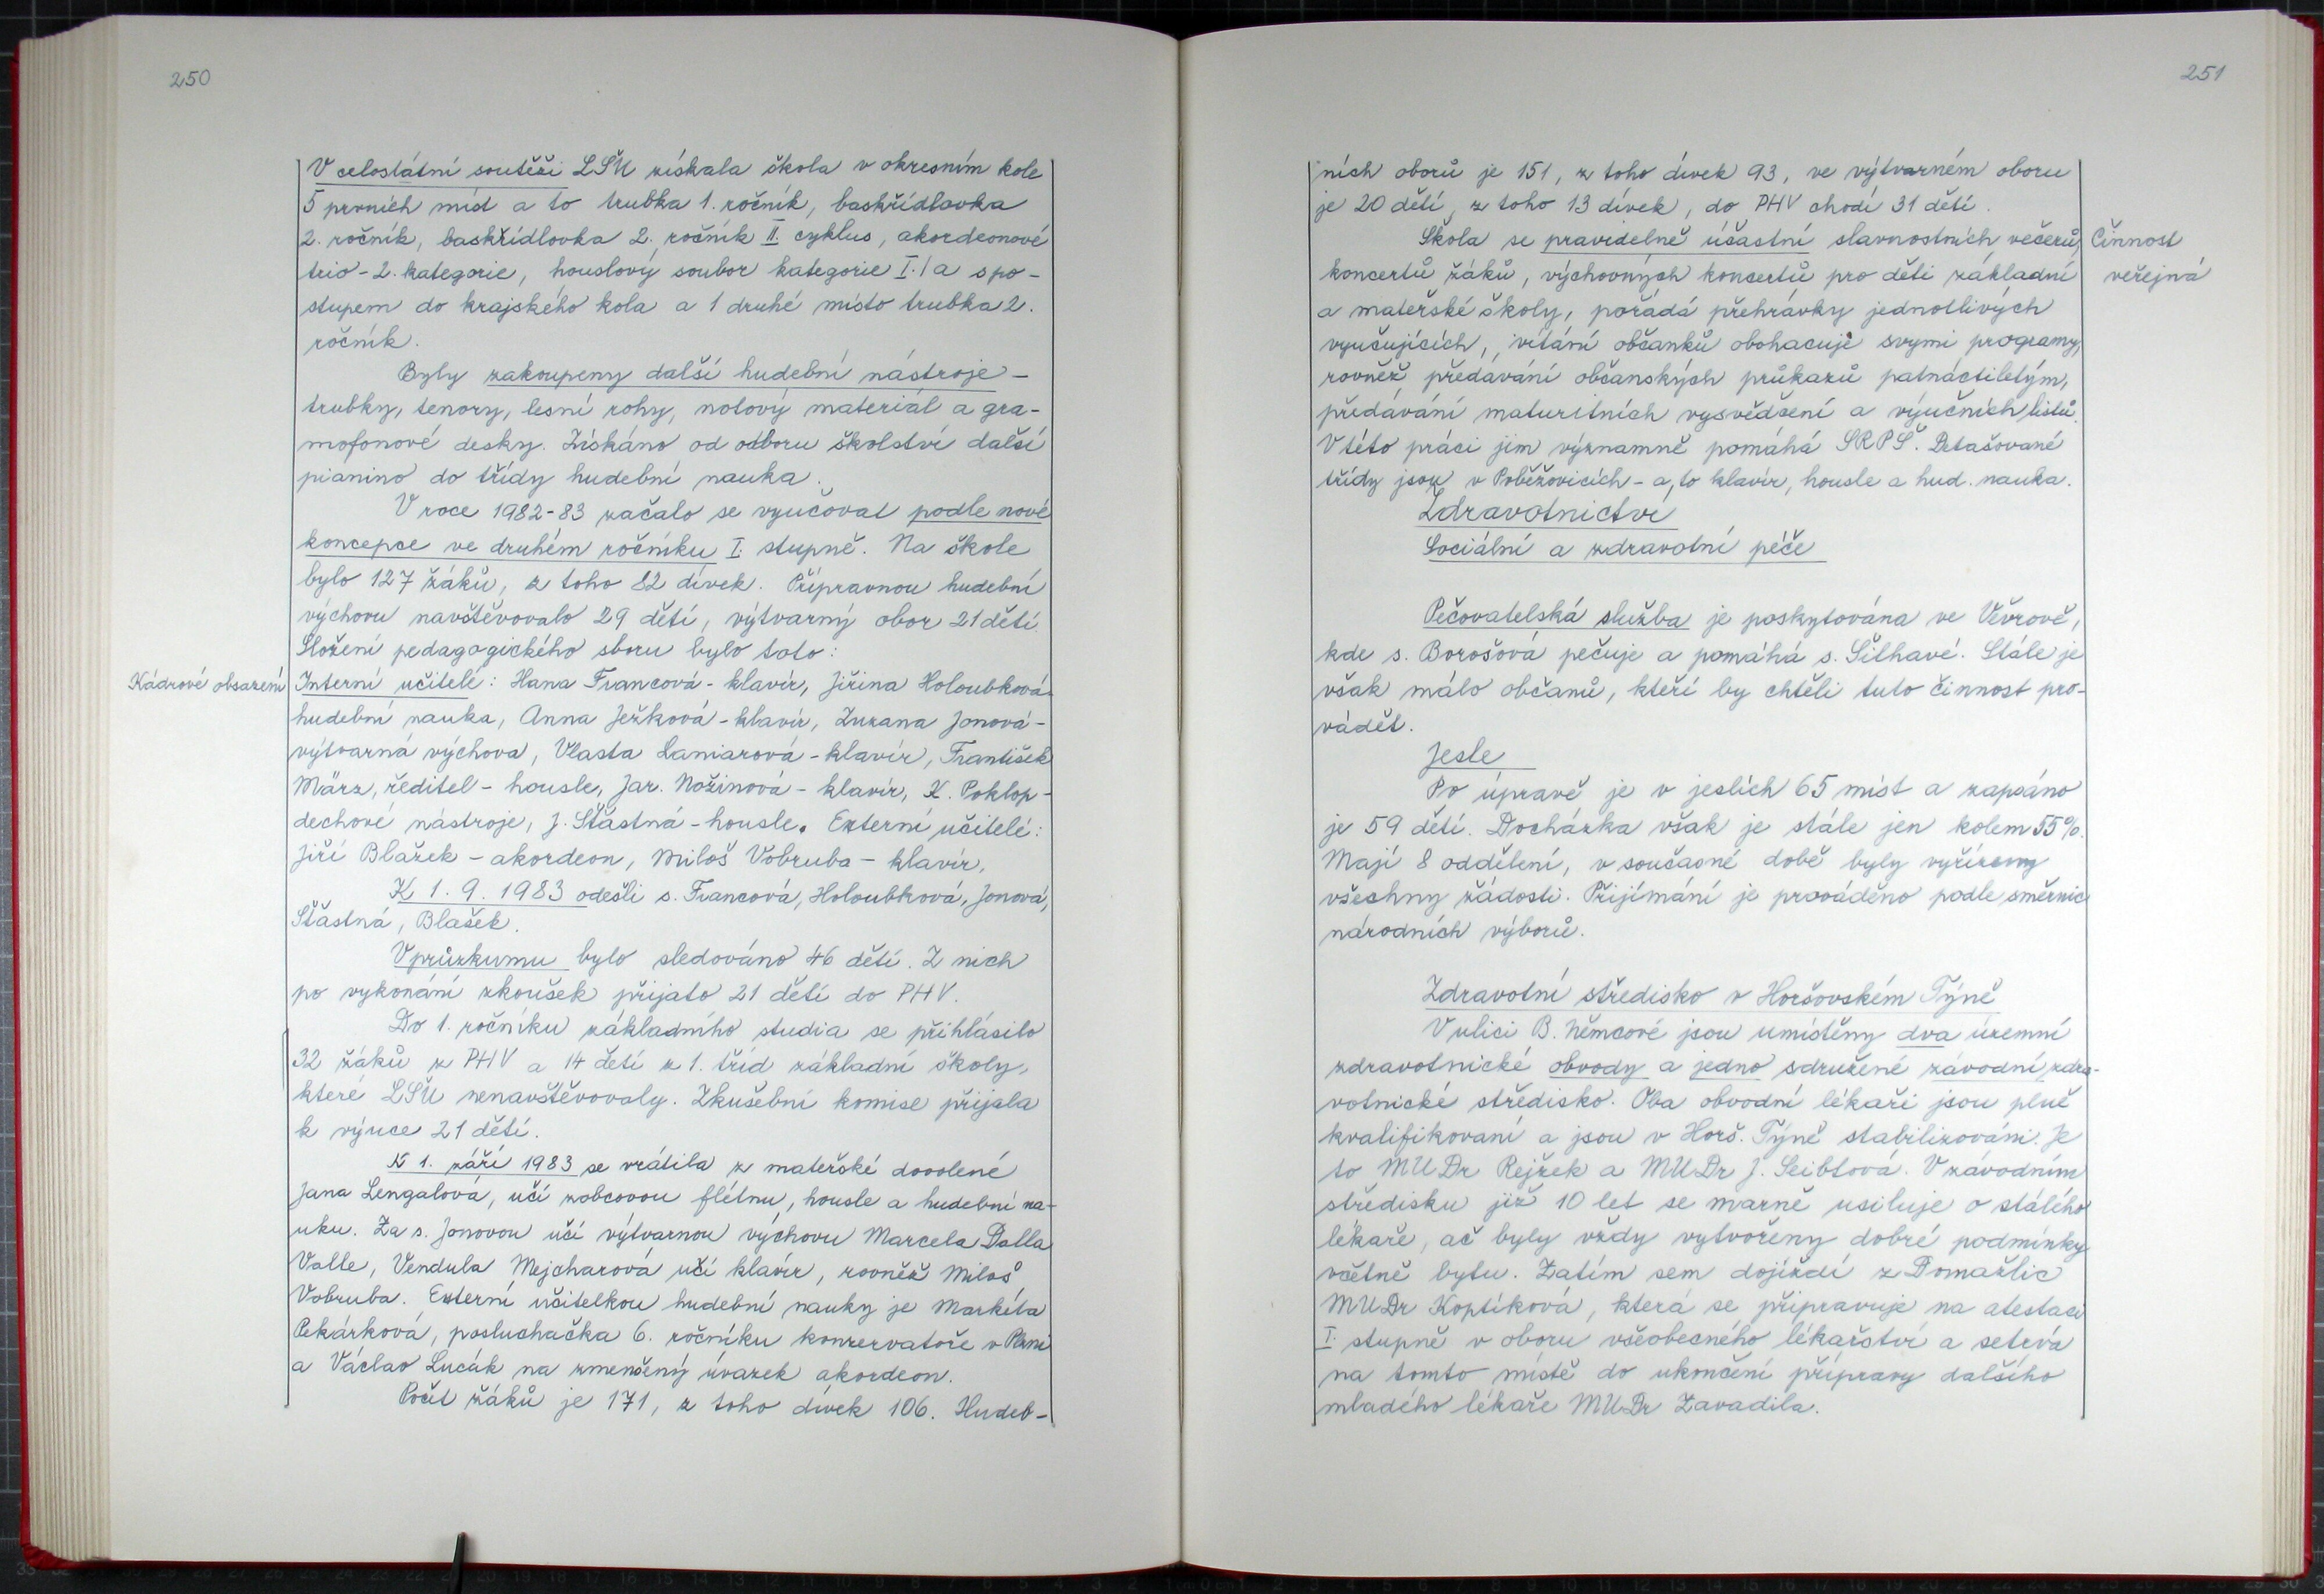 250
V celostátní soutěži LŠU získala škola v okresním kole
5 prvních míst a to trubka 1. ročník, baskřídlovka
2. ročník, baskřídlovka 2. ročník II. cyklus, akordeonové
trio - 2. kategorie, houslový soubor kategorie I./a s po-
stupem do krajského kola a 1 druhé místo trubka 2.
ročník.
Byly zakoupeny další hudební nástroje -
trubky, tenory, lesní rohy, notový materiál a gra-
mofonové desky. Získáno od odboru školství další
pianino do třídy hudební nauka.
V roce 1982-83 začalo se vyučovat podle nové
koncepce ve druhém ročníku I. stupně. Na škole
bylo 127 žáků, z toho 82 dívek. Přípravnou hudební
výchovu navštěvovalo 29 dětí, výtvarný obor 21 dětí.
Složení pedagogického sboru bylo toto:
Kádrové obsazení
Interní učitelé: Hana Francová - klavír, Jiřina Holoubková
hudební nauka, Anna Ježková - klavír, Zuzana Jonová -
výtvarná výchova, Vlasta Laniarová - klavír, František
März, ředitel - housle, Jar. Nožinová - klavír, K. Poklop -
dechové nástroje, J. Šťastná - housle. Externí učitelé:
Jiří Blažek - akordeon, Miloš Vobruba - klavír.
K 1. 9. 1983 odešli s. Francová, Holoubková, Jonová,
Šťastná, Blašek.
V průzkumu bylo sledováno 46 dětí. Z nich
po vykonání zkoušek přijato 21 dětí do PHV.
Do 1. ročníku základního studia se přihlásilo
32 žáků z PHV a 14 dětí z 1. tříd základní školy,
které LŠU nenavštěvovaly. Zkušební komise přijala
k výuce 21 dětí.
K 1. září 1983 se vrátila z mateřské dovolené
Jana Lengalová, učí zobcovou flétnu, housle a hudební na-
uku. Za s. Jonovou učí výtvarnou výchovu Marcela Dalla
Valle, Vendula Mejcharová učí klavír, rovněž Miloš
Vobruba. Externí učitelkou hudební nauky je Markéta
Pekárková, posluchačka 6. ročníku konzervatoře v Plzni
a Václav Lucák na zmenšený úvazek akordeon.
Počet žáků je 171, z toho dívek 106. Hudeb-
251
ních oborů je 151, z toho dívek 93, ve výtvarném oboru
je 20 dětí, z toho 13 dívek, do PHV chodí 31 dětí.
Škola se pravidelně účastní slavnostních večerů,
Činnost
veřejná
koncertů žáků, výchovných koncertů pro děti základní
a mateřské školy, pořádá přehrávky jednotlivých
vyučujících, vítání občánků obohacuje svými programy,
rovněž předávání občanských průkazů patnáctiletým,
předávání maturitních vysvědčení a výučních listů.
V této práci jim významně pomáhá SRPŠ. Detašované
třídy jsou v Poběžovicích - a to klavír, housle a hud. nauka.
Zdravotnictví
Sociální a zdravotní péče
Pečovatelská služba je poskytována ve Věvrově,
kde s. Borošová pečuje a pomáhá s. Šilhavé. Stále je
však málo občanů, kteří by chtěli tuto činnost pro-
vádět.
Jesle
Po úpravě je v jeslích 65 míst a zapsáno
je 59 dětí. Docházka však je stále jen kolem 55%.
Mají 8 oddělení, v současné době byly vyřízeny
všechny žádosti. Přijímání je prováděno podle směrnic
národních výborů.
Zdravotní středisko v Horšovském Týně
V ulici B. Němcové jsou umístěny dva územní
zdravotnické obvody a jedno sdružené závodní zdra-
votnické středisko. Oba obvodní lékaři jsou plně
kvalifikovaní a jsou v Horš. Týně stabilizováni. Je
to MUDr Rejžek a MUDr J. Seibtová. V závodním
středisku již 10 let se marně usiluje o stálého
lékaře, ač byly vždy vytvořeny dobré podmínky
včetně bytu. Zatím sem dojíždí z Domažlic
MUDr Koptíková, která se připravuje na atestaci
I. stupně v oboru všeobecného lékařství a setrvá
na tomto místě do ukončení přípravy dalšího
mladého lékaře MUDr Zavadila.